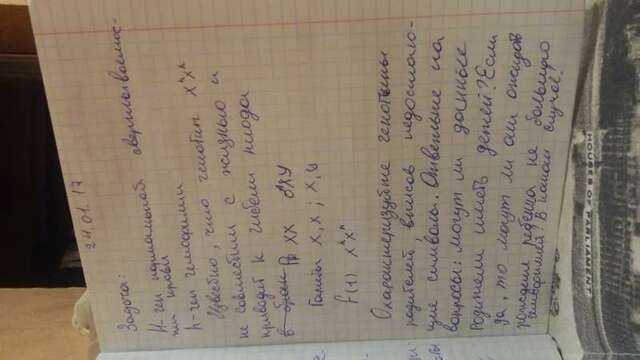 24.01.17
Задача:
H-ген нормальной свертываемос-
ти крови
h-ген гемофилии
Известно, что генотип XʰXʰ
не совместим с жизнью и
приводит к гибели плода
в брак P XX ♂XY
Гаметы X, X ; X, Y
F(1) XʰXʰ
Охарактеризуйте генотипы
родителей, вписав недостаю-
щие символы. Ответьте на
вопросы: могут ли данные
родители иметь детей? Если
да, то могут ли они ожидать
рождение ребенка не больного
гемофилией? В каком случае?
HOUSES OF PARLIAMENT